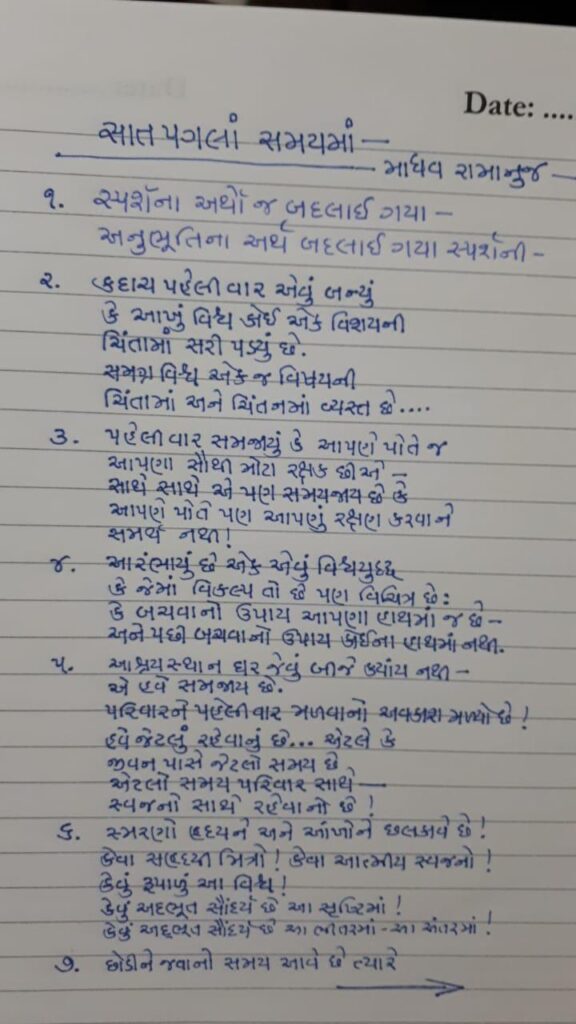 Date: ....
સાત પગલાં સમયમાં —
— માધવ રામાનુજ —
૧. સ્પર્શના અર્થો જ બદલાઈ ગયા —
અનુભૂતિના અર્થ બદલાઈ ગયા સ્પર્શની –
૨. કદાચ પહેલી વાર એવું બન્યું
કે આખું વિશ્વ કોઈ એક વિશયની
ચિંતામાં સરી પડ્યું છે.
સમગ્ર વિશ્વ એક જ વિષયની
ચિંતામાં અને ચિંતનમાં વ્યસ્ત છે....
૩. પહેલી વાર સમજાયું કે આપણે પોતે જ
આપણા સૌથી મોટા રક્ષક છીએ –
સાથે સાથે એ પણ સમયજાય છે કે
આપણે પોતે પણ આપણું રક્ષણ કરવાને
સમર્થ નથી!
૪. આરંભાયું છે એક એવું વિશ્વયુદ્ધ
કે જેમાં વિકલ્પ તો છે પણ વિચિત્ર છે:
કે બચવાનો ઉપાય આપણા હાથમાં જ છે –
અને પછી બચવાનો ઉપાય કોઈના હાથમાં નથી.
૫. આશ્રયસ્થાન ઘર જેવું બીજે ક્યાંય નથી –
એ હવે સમજાય છે.
પરિવારને પહેલીવાર મળવાનો અવકાશ મળ્યો છે!
હવે જેટલું રહેવાનું છે... એટલે કે
જીવન પાસે જેટલો સમય છે
એટલો સમય પરિવાર સાથે —
સ્વજનો સાથે રહેવાનો છે!
૬. સ્મરણો હૃદયને અને આંખોને છલકાવે છે!
કેવા સહૃદયી મિત્રો! કેવા આત્મીય સ્વજનો!
કેવું રૂપાળું આ વિશ્વ!
કેવું અદભૂત સૌંદર્ય છે આ સૃષ્ટિમાં!
કેવું અદ્ભૂત સૌંદર્ય છે આ ભીતરમાં - આ અંતરમાં!
૭. છોડીને જવાનો સમય આવે છે ત્યારે